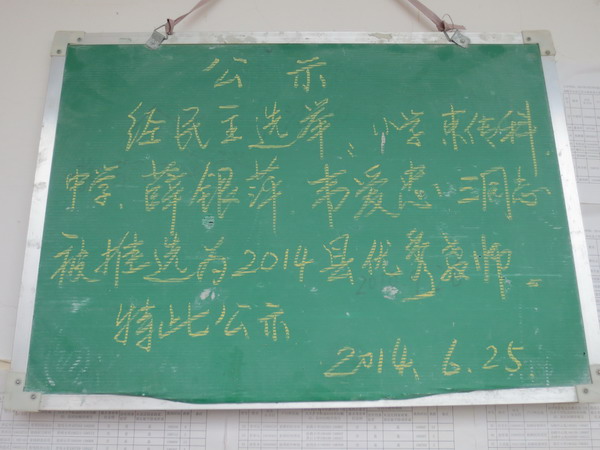 公示
经民主选举，小学东传科
中学、薛银萍 韦爱惠 三同志
被推选为2014县优秀教师。
特此公示
2014.6.25